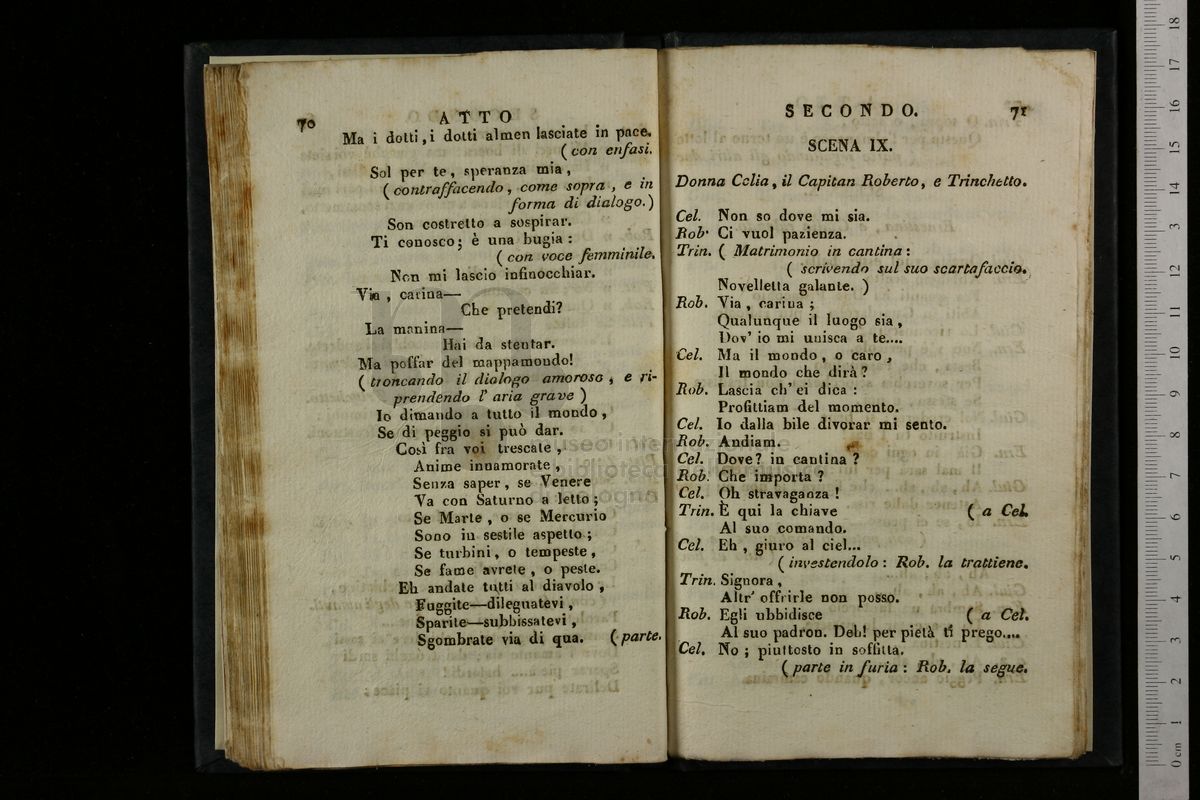 70 ATTO
Ma i dotti, i dotti almen lasciate in pace.
( con enfasi.
Sol per te, speranza mia,
( contraffacendo, come sopra, e in
forma di dialogo.)
Son costretto a sospirar.
Ti conosco; è una bugia :
( con voce femminile.
Non mi lascio infinocchiar.
Via, carina—
Che pretendi?
La manina—
Hai da stentar.
Ma poffar del mappamondo!
( troncando il dialogo amoroso, e ri-
prendendo l' aria grave )
Io dimando a tutto il mondo,
Se di peggio si può dar.
Così fra voi trescate,
Anime innamorate,
Senza saper, se Venere
Va con Saturno a letto;
Se Marte, o se Mercurio
Sono in sestile aspetto;
Se turbini, o tempeste,
Se fame avrete, o peste.
Eh andate tutti al diavolo,
Fuggite—dileguatevi,
Sparite—subbissatevi,
Sgombrate via di qua. ( parte.
SECONDO. 71
SCENA IX.
Donna Celia, il Capitan Roberto, e Trinchetto.
Cel. Non so dove mi sia.
Rob. Ci vuol pazienza.
Trin. ( Matrimonio in cantina :
( scrivendo sul suo scartafaccio.
Novelletta galante. )
Rob. Via, carina ;
Qualunque il luogo sia,
Dov' io mi unisca a te....
Cel. Ma il mondo, o caro,
Il mondo che dirà?
Rob. Lascia ch' ei dica :
Profittiam del momento.
Cel. Io dalla bile divorar mi sento.
Rob. Andiam.
Cel. Dove? in cantina ?
Rob. Che importa ?
Cel. Oh stravaganza !
Trin. È qui la chiave ( a Cel.
Al suo comando.
Cel. Eh, giuro al ciel...
( investendolo : Rob. la trattiene.
Trin. Signora,
Altr' offrirle non posso.
Rob. Egli ubbidisce ( a Cel.
Al suo padron. Deh! per pietà ti prego....
Cel. No ; piuttosto in soffitta.
( parte in furia : Rob. la segue.